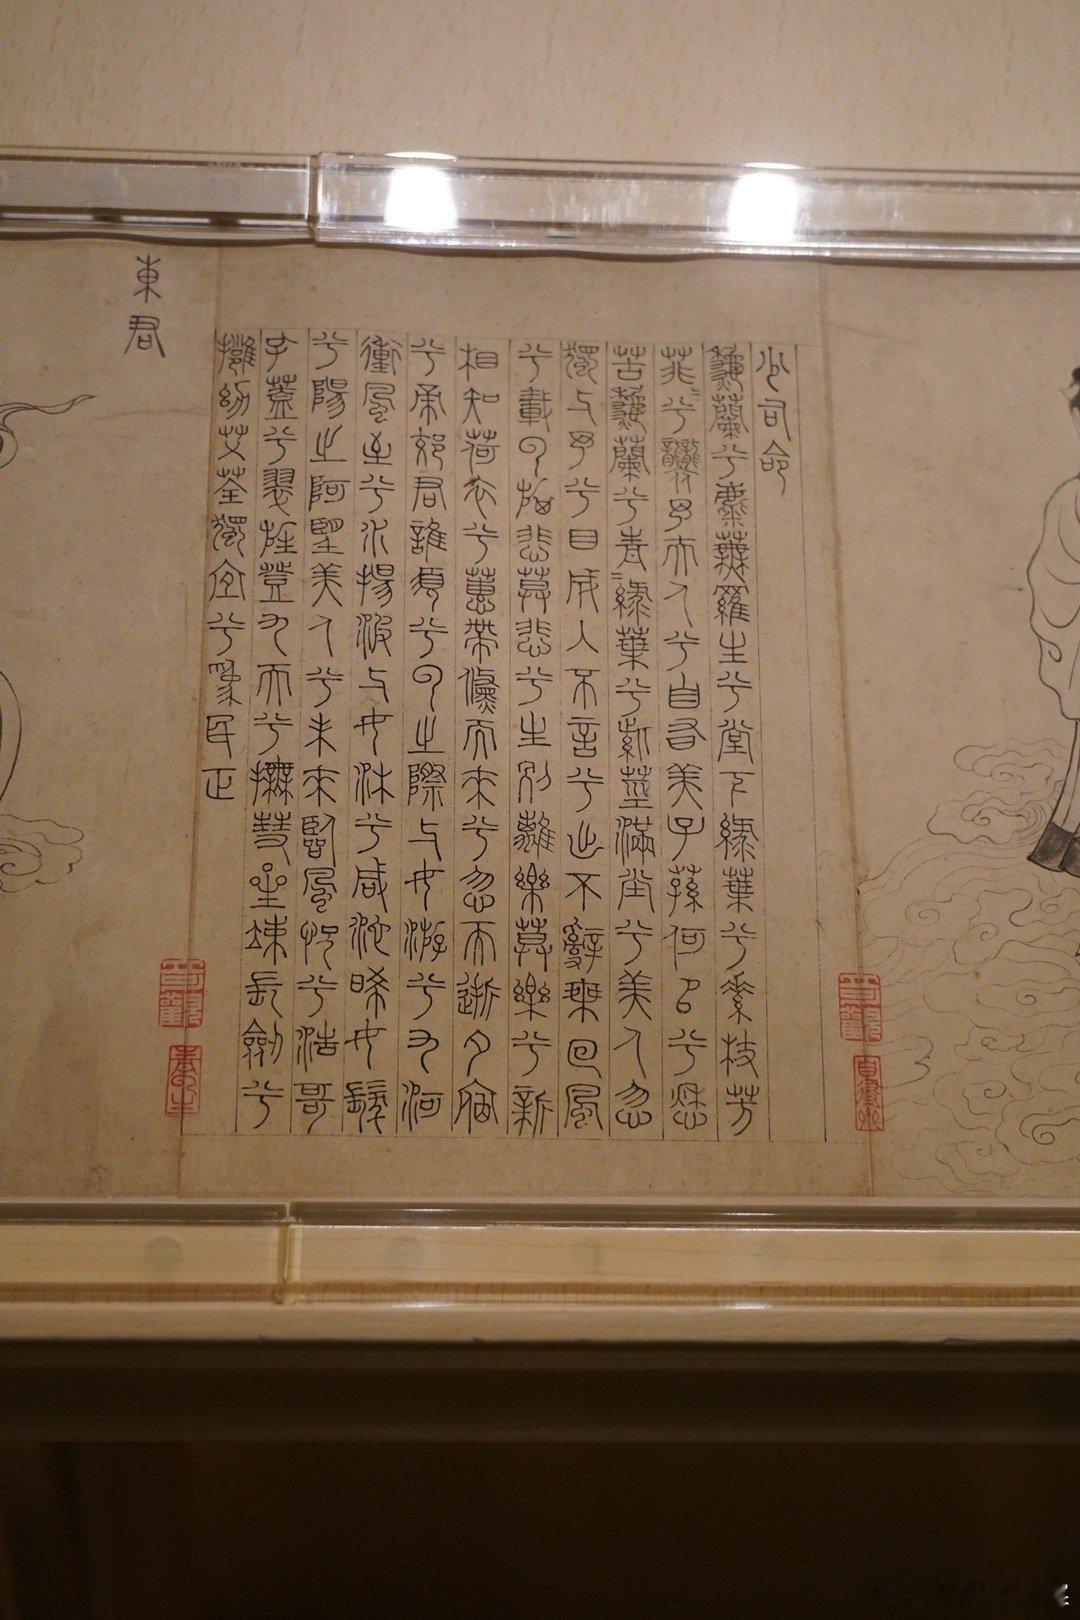 少司命
秋蘭兮麋蕪羅生兮堂下綠葉兮素枝芳
菲〻兮襲予夫人兮自有美子蓀何㠯兮愁
苦秋蘭兮青〻綠葉兮紫莖滿堂兮美人忽
獨与予兮目成入不言兮出不辭乘回風
兮載云旗悲莫悲兮生別離樂莫樂兮新
相知荷衣兮蕙帶儵而來兮忽而逝夕宿
兮帝郊君誰須兮云之際与女游兮九河
衝風至兮水揚波与女沐兮咸池晞女髮
兮陽之阿望美人兮未來臨風怳兮浩哥
孔蓋兮翠旌登九天兮撫彗星竦長劍兮
擁幼艾荃獨宜兮爲民正
東君